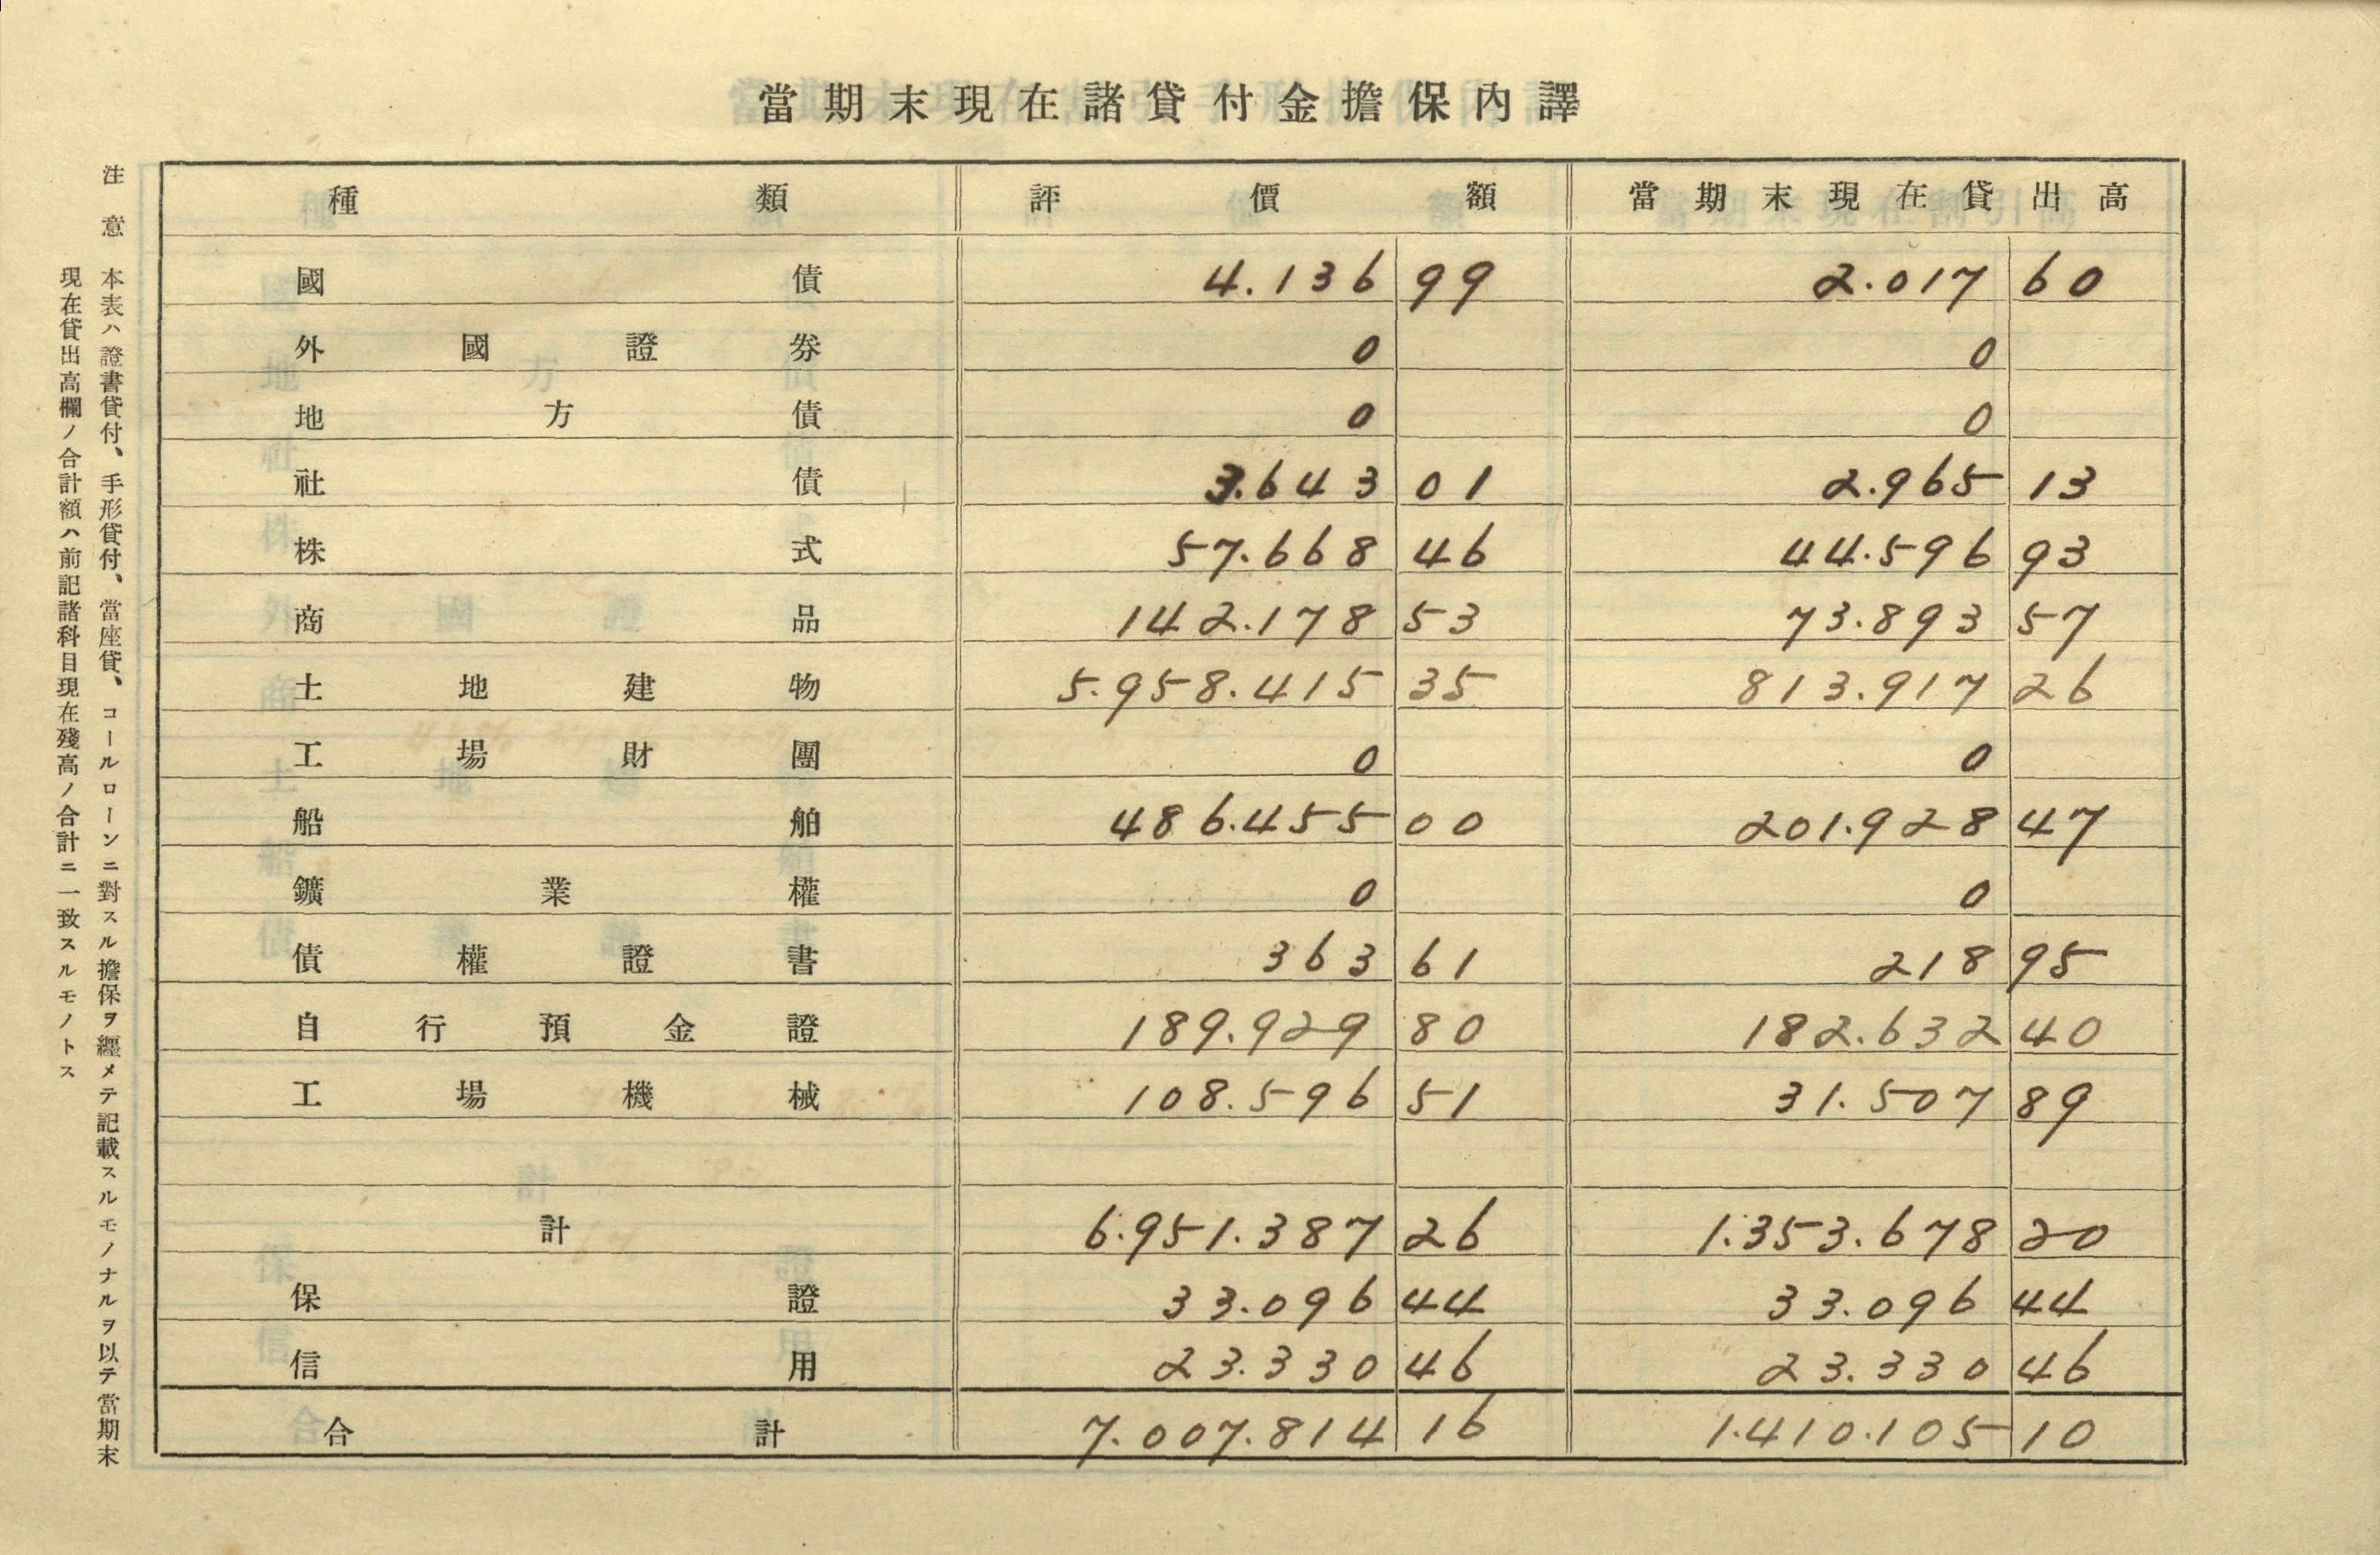 當期末現在諸貸付金擔保內譯
種類 評價額 當期末現在貸出高
國債 4.136 99 2.017 60
外國證券 0 0
地方債 0 0
社債 3.643 01 2.965 13
株式 57.668 46 44.596 93
商品 142.178 53 73.893 57
土地建物 5.958.415 35 813.917 26
工場財團 0 0
船舶 486.455 00 201.928 47
鑛業權 0 0
債權證書 363 61 218 95
自行預金證 189.929 80 182.632 40
工場機械 108.596 51 31.507 89
計 6.951.387 26 1.353.678 20
保證 33.096 44 33.096 44
信用 23.330 46 23.330 46
合計 7.007.814 16 1.410.105 10
注意
本表ハ證書貸付、手形貸付、當座貸、コールローンニ對スル擔保ヲ纒メテ記載スルモノナルヲ以テ當期末
現在貸出高欄ノ合計額ハ前記諸科目現在殘高ノ合計ニ一致スルモノトス